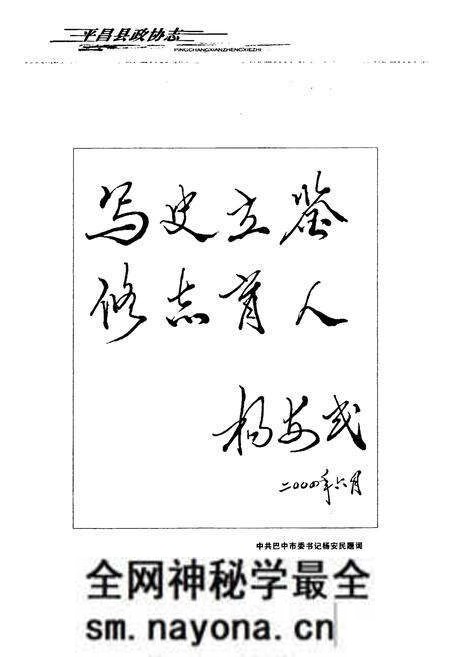 平昌县政协志
PINGCHANGXIANZHENGXIEZHI
写史立鉴
修志育人
杨安民
二〇〇四年六月
中共巴中市委书记杨安民题词
全网神秘学最全
sm.nayona.cn